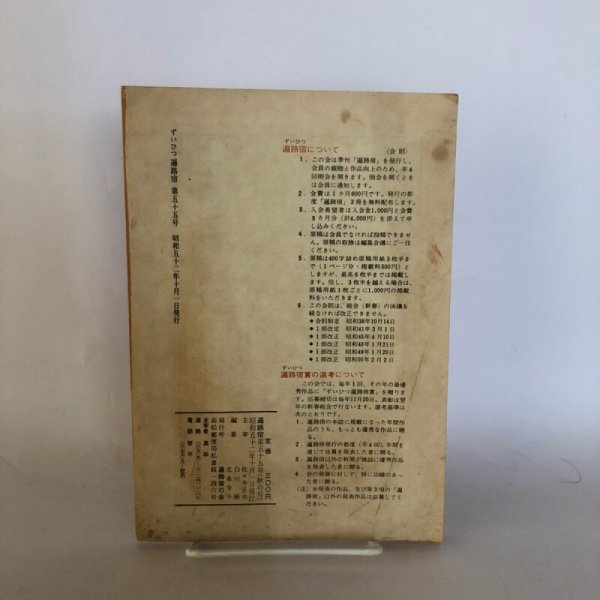 ずいひつ 遍路宿 第五十五号 昭和五十二年十月一日発行
ずいひつ
遍路宿について （会則）
1．この会は季刊「遍路宿」を発行し、
会員の親睦と作品向上のため、年4
回例会を開きます。例会を開くとき
は会員に通知します。
2．会費は1カ月600円です。発行の都
度「遍路宿」3冊を無料配布します。
3．入会希望者は入会金1,000円と会費
5カ月分（計4,000円）を添えて申
し込みください。
4．原稿は会員でなければ投稿できませ
ん。原稿の取捨は編集会議にご一任
ください。
5．原稿は400字詰め原稿用紙3枚半ま
で（1ページ分・掲載料500円）と
しますが、最高6枚半までは掲載し
ます。但し、3枚半を越える場合は、
原稿用紙1枚ごとに1,000円の掲載
料をいただきます。
6．この会則は、総会（新春）の決議を
経なければ改正できません。
●会則制定 昭和38年10月14日
●1部改定 昭和41年3月1日
●1部改正 昭和45年4月10日
●1部改正 昭和48年1月21日
●1部改正 昭和49年1月20日
●1部改正 昭和50年2月2日
ずいひつ
遍路宿賞の選考について
この会では、毎年1回、その年の最優
秀作品に「ずいひつ遍路宿賞」を贈りま
す。応募締切は毎年11月20日、表彰は翌
年の新春総会で行ないます。選考基準は
次のとおり。
1．遍路宿の本誌に掲載になった年間作
品のうち、もっとも優秀な作品に贈
る。
2．遍路宿発行の都度（年4回）年間を
通じて佳篇を発表した者に贈る。
3．遍路宿以外の新聞か雑誌に優秀作品
を発表した者に贈る。
4．会の発展に対して、特に功績のあっ
た者に贈る。
（注）未発表の作品、及び第3項の「遍
路宿」以外の発表作品は応募してく
ださい。
定価 三〇〇円
遍路宿第五十五号（秋の号）
昭和五十二年十月一日発行
主宰 佐々木正夫
編集
発行所 遍路宿の会
高松郵便局私書箱一四六号